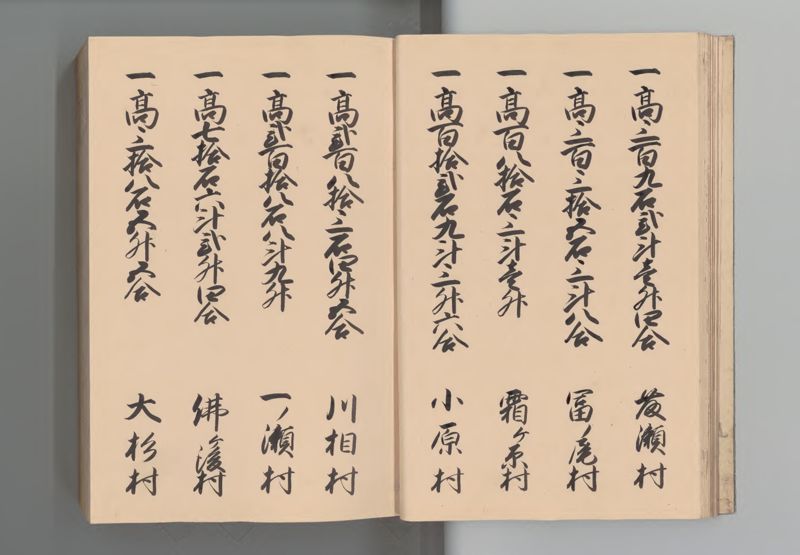 一高三百九石弐斗壱升四合 藤瀬村
一高三百三拾五石三斗八合 冨ノ尾村
一高百八拾石三斗壱升 霜ヶ原村
一高百拾弐石九斗三升六合 小原村
一高弐百八拾三石四升五合 川相村
一高弐百拾八石八斗九升 一ノ瀬村
一高七拾石六斗弐升四合 佛ヶ後村
一高三拾八石五升五合 大杉村